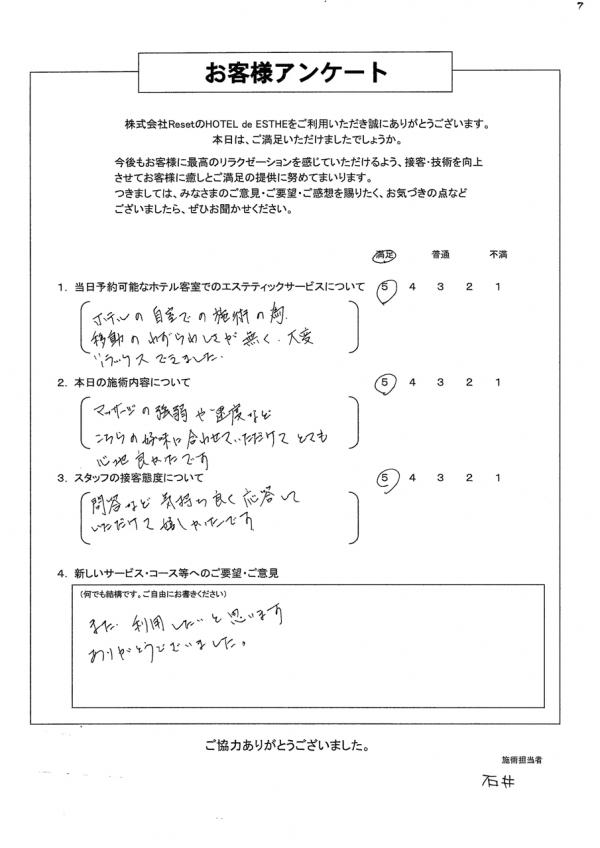 7
お客様アンケート
株式会社ResetのHOTEL de ESTHEをご利用いただき誠にありがとうございます。
本日は、ご満足いただけましたでしょうか。
今後もお客様に最高のリラクゼーションを感じていただけるよう、接客・技術を向上
させてお客様に癒しとご満足の提供に努めてまいります。
つきましては、みなさまのご意見・ご要望・ご感想を賜りたく、お気づきの点など
ございましたら、ぜひお聞かせください。
満足 普通 不満
1. 当日予約可能なホテル客室でのエステティックサービスについて 5 4 3 2 1
ホテルの自室での施術の為、
移動のわずらわしさが無く、大変
リラックスできました。
2. 本日の施術内容について 5 4 3 2 1
マッサージの強弱や速度など
こちらの好味に合わせていただけてとても
心地良かったです
3. スタッフの接客態度について 5 4 3 2 1
問答など気持ち良く応答して
いただけて嬉しかったです
4. 新しいサービス・コース等へのご要望・ご意見
(何でも結構です。ご自由にお書きください)
また利用したいと思います
ありがとうございました。
ご協力ありがとうございました。
施術担当者
石井